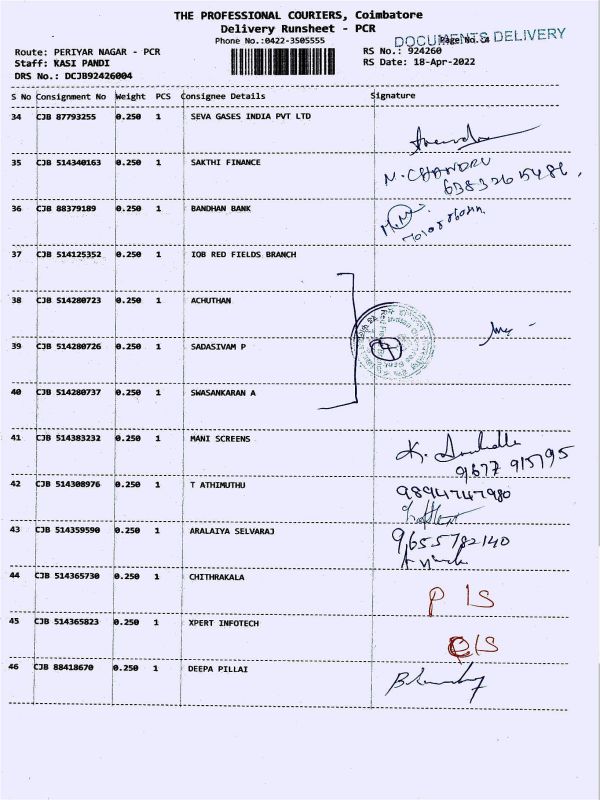 THE PROFESSIONAL COURIERS, Coimbatore
Delivery Runsheet - PCR
DOCUMENTS DELIVERY
Phone No.:0422-3505555
Page No.
Route: PERIYAR NAGAR - PCR
RS No.: 924260
Staff: KASI PANDI
RS Date: 18-Apr-2022
DRS No.: DCJB92426004
S No Consignment No Weight PCS Consignee Details Signature
34 CJB 87793255 0.250 1 SEVA GASES INDIA PVT LTD
35 CJB 514340163 0.250 1 SAKTHI FINANCE N. CHANDRU
36 CJB 88379189 0.250 1 BANDHAN BANK
37 CJB 514125352 0.250 1 IOB RED FIELDS BRANCH
38 CJB 514280723 0.250 1 ACHUTHAN
39 CJB 514280726 0.250 1 SADASIVAM P
40 CJB 514280737 0.250 1 SWASANKARAN A
41 CJB 514383232 0.250 1 MANI SCREENS
9677 915795
42 CJB 514308976 0.250 1 T ATHIMUTHU 9894747980
43 CJB 514359590 0.250 1 ARALAIYA SELVARAJ 9655782140
44 CJB 514365730 0.250 1 CHITHRAKALA P/S
45 CJB 514365823 0.250 1 XPERT INFOTECH P/S
46 CJB 88418670 0.250 1 DEEPA PILLAI